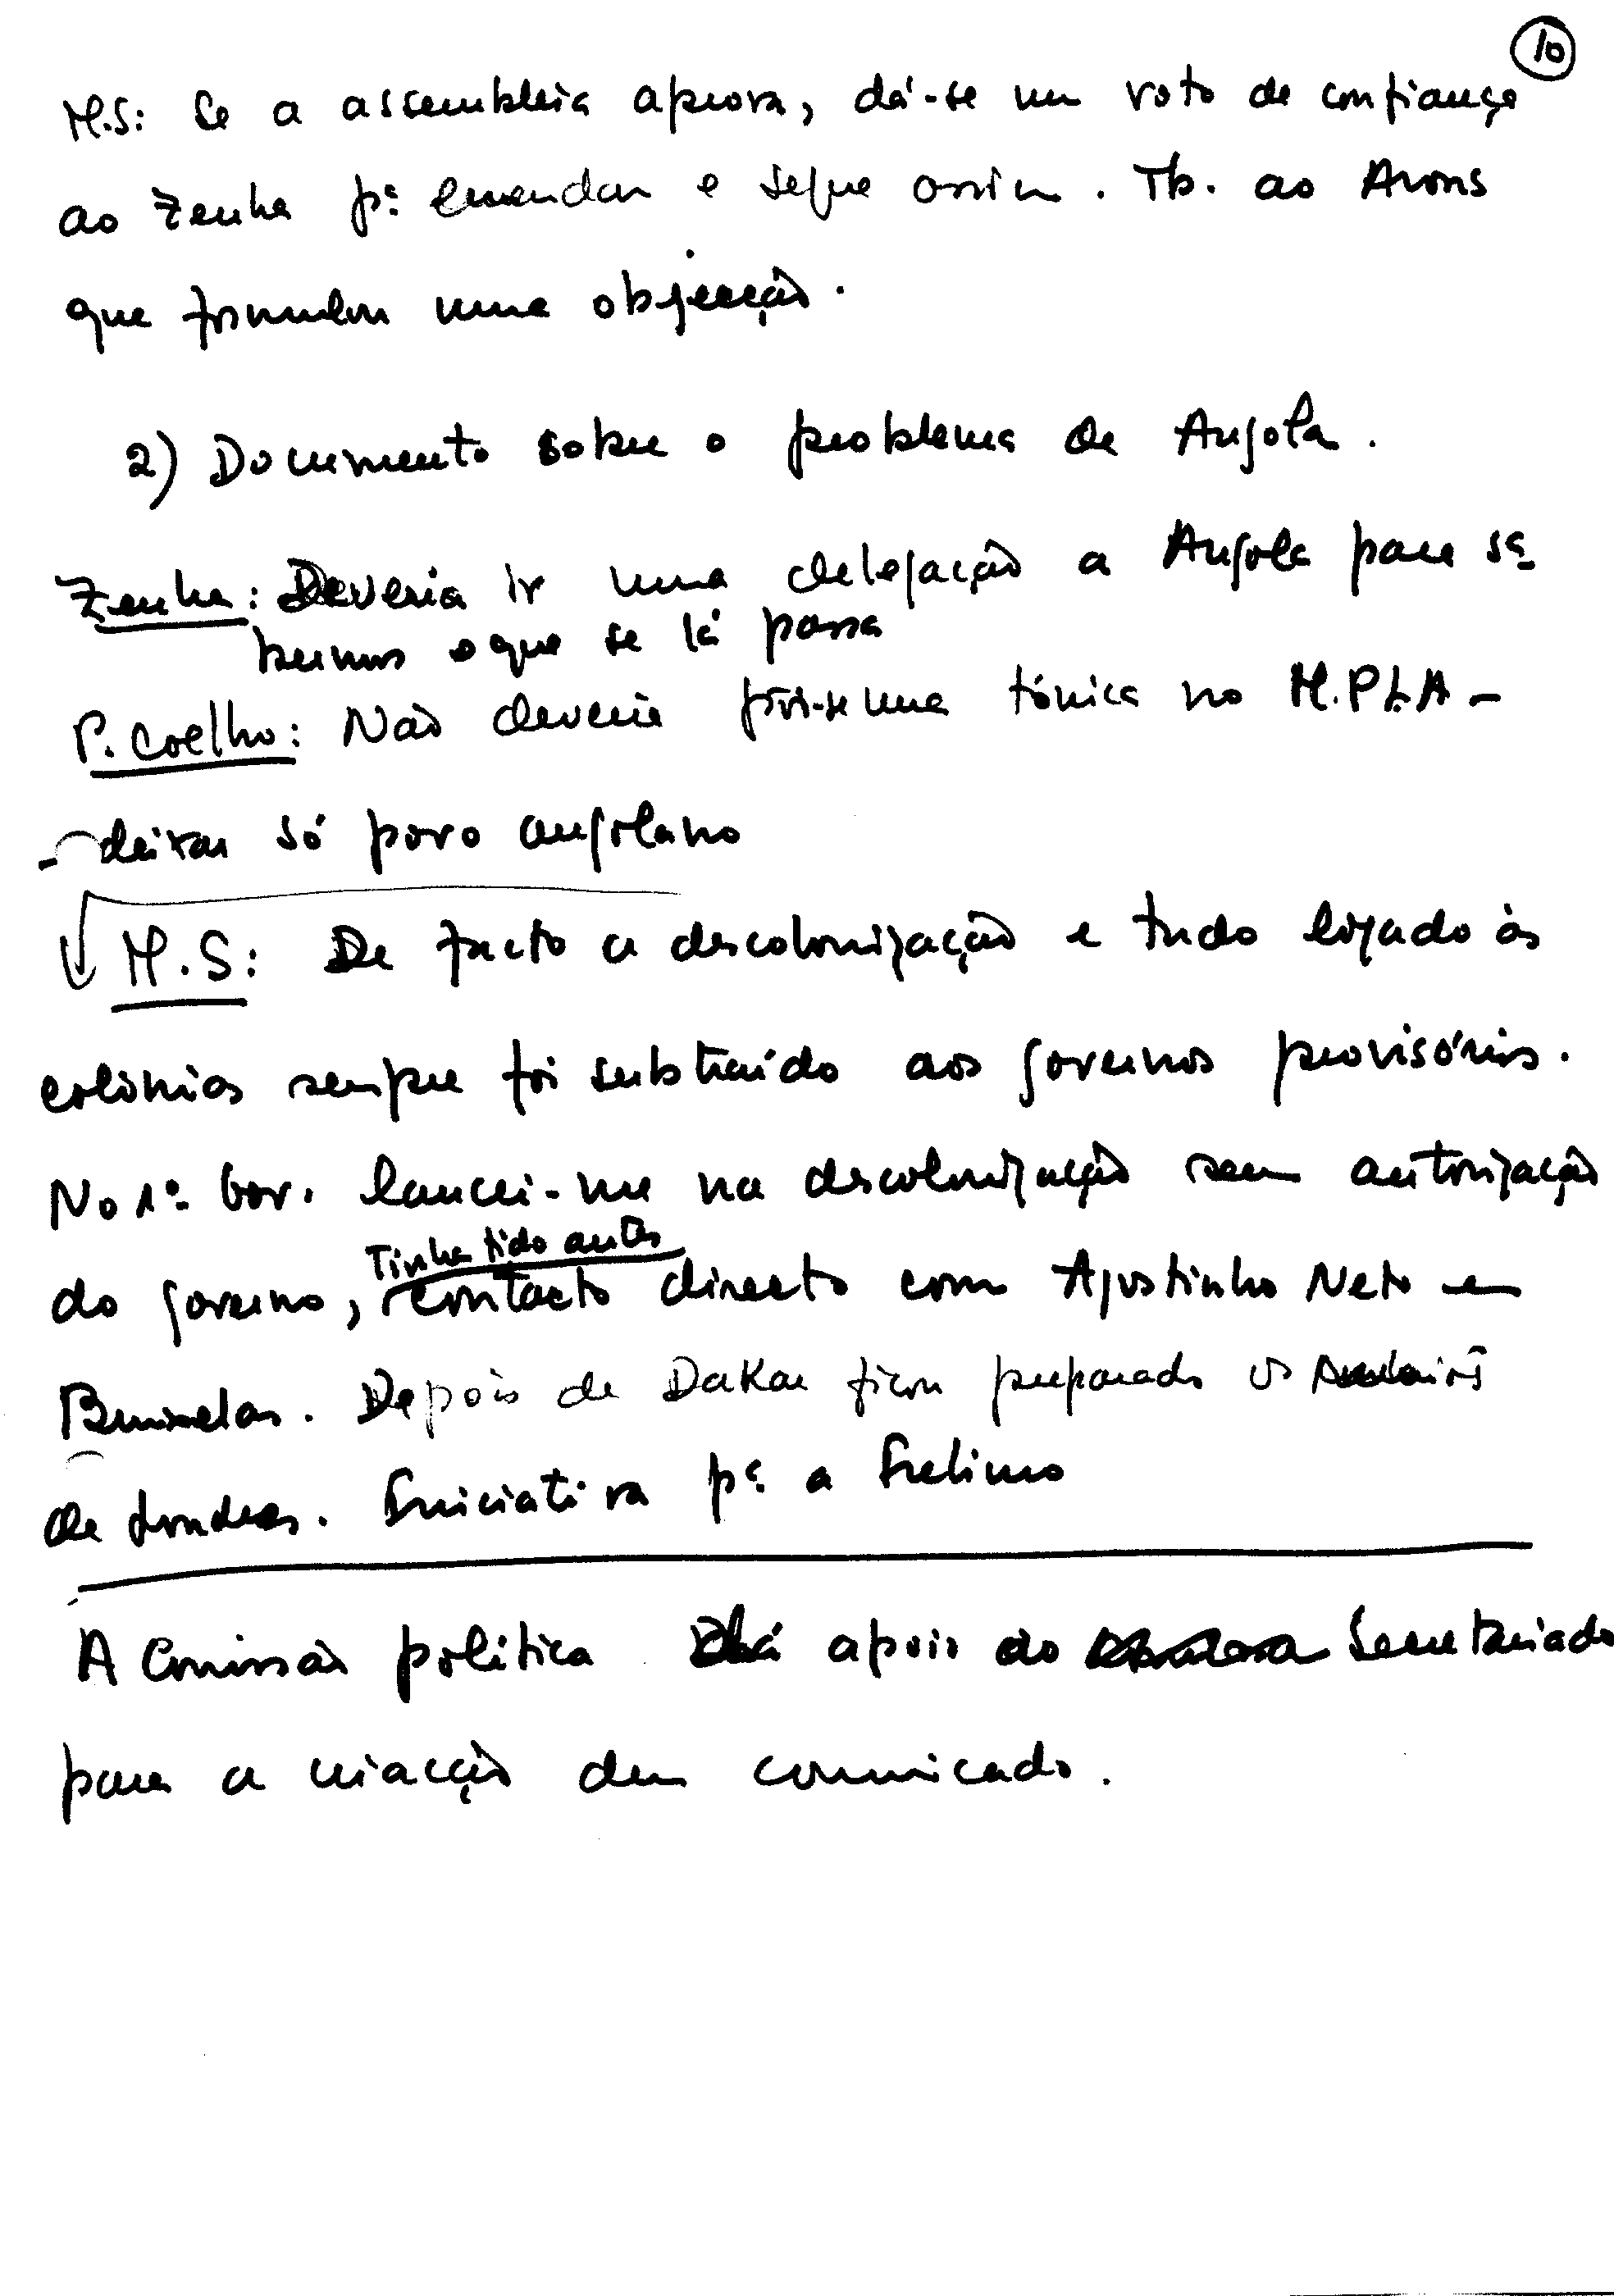 10
M.S: Se a assembleia aprova, dá-se um voto de confiança
ao Zenha pª emendar e segue assim. Tb. ao Arons
que formulou uma objecção.
2) Documento sobre o problema de Angola.
Zenha: Deveria ir uma delegação a Angola para sa-
bermos o que se lá passa
P. Coelho: Não deveria pôr-se uma tónica no M.P.L.A -
- deixar só povo angolano
M.S: De facto a descolonização e tudo ligado às
colónias sempre foi subtraído aos governos provisórios.
No 1º Gov. lancei-me na descolonização sem autorização
Tinha tido antes
do governo, contacto directo com Agostinho Neto em
Bruxelas. Depois de Dakar ficou preparado
de Londres. Iniciativa pª a Frelimo
A Comissão política dá apoio ao Secretariado
para a criacção dum comunicado.